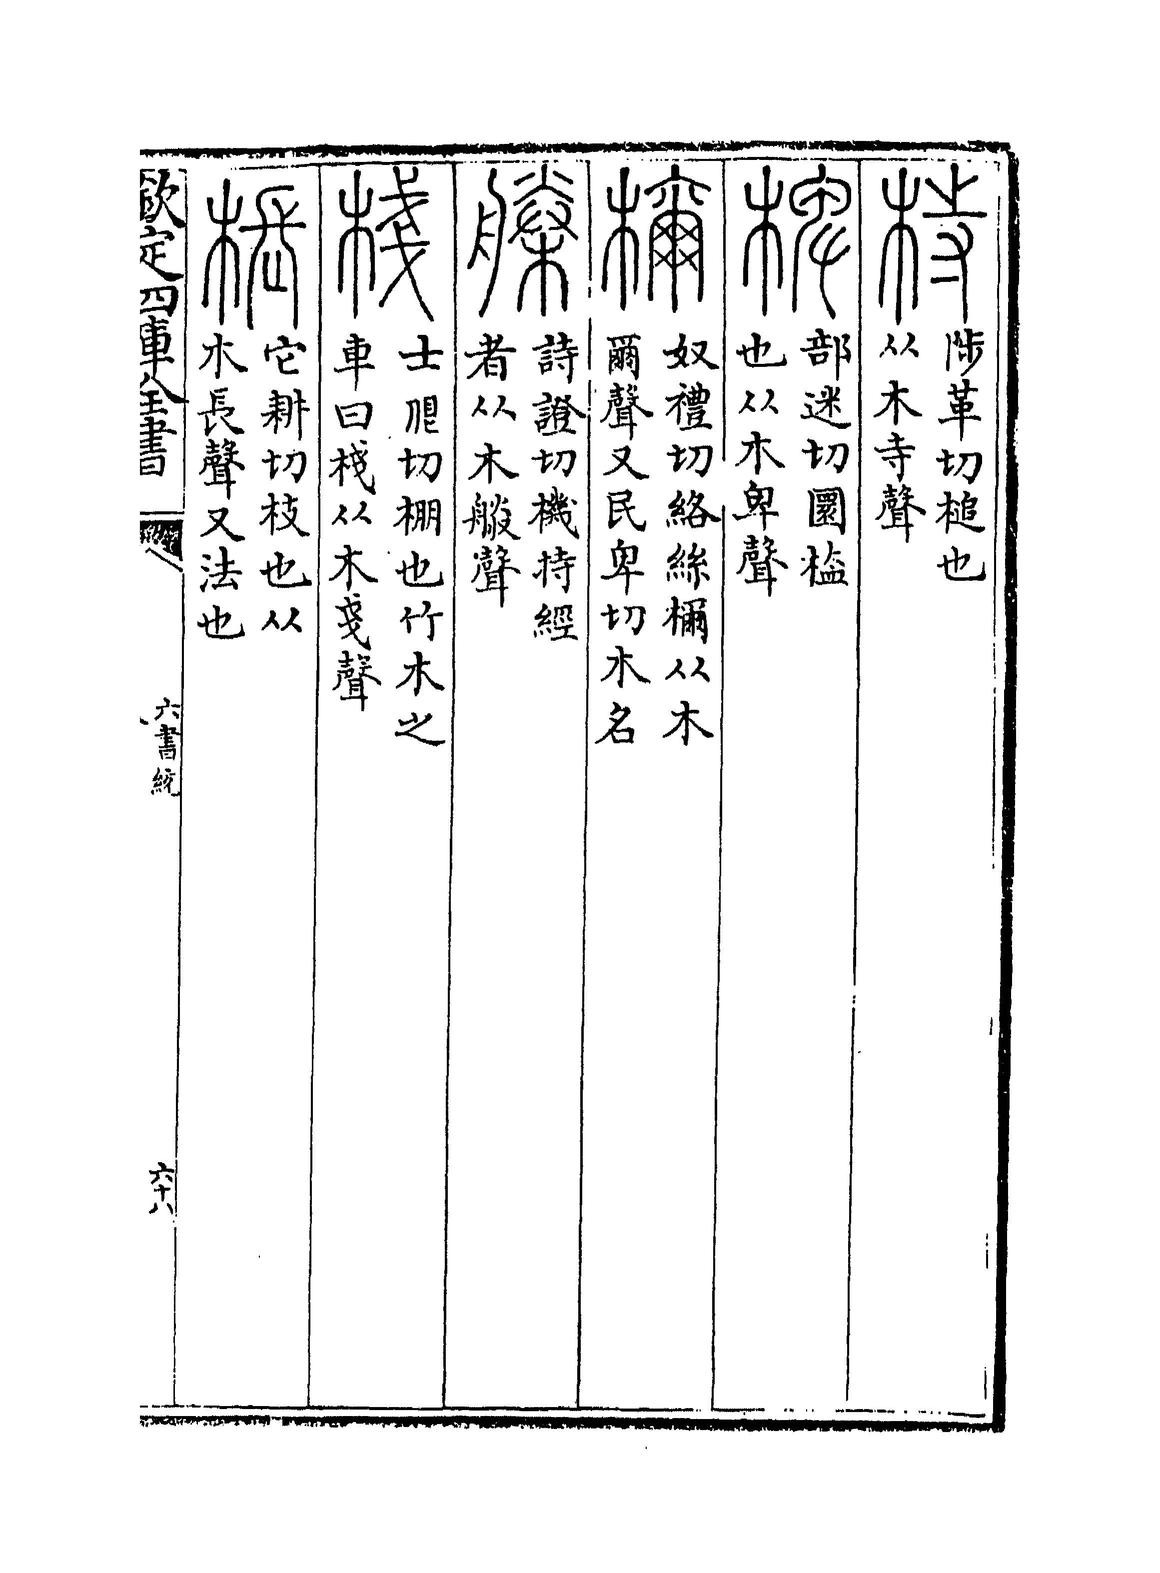 㭙
陟革切槌也
从木寺聲
椑
部迷切圜榼
也从木卑聲
檷
奴禮切絡絲檷从木
爾聲又民卑切木名
榺
詩證切機持經
者从木朕聲
棧
士切棚也竹木之
車曰棧从木戔聲
棖
它耕切枝也从
木長聲又法也
欽定四庫全書
六書統
六十八